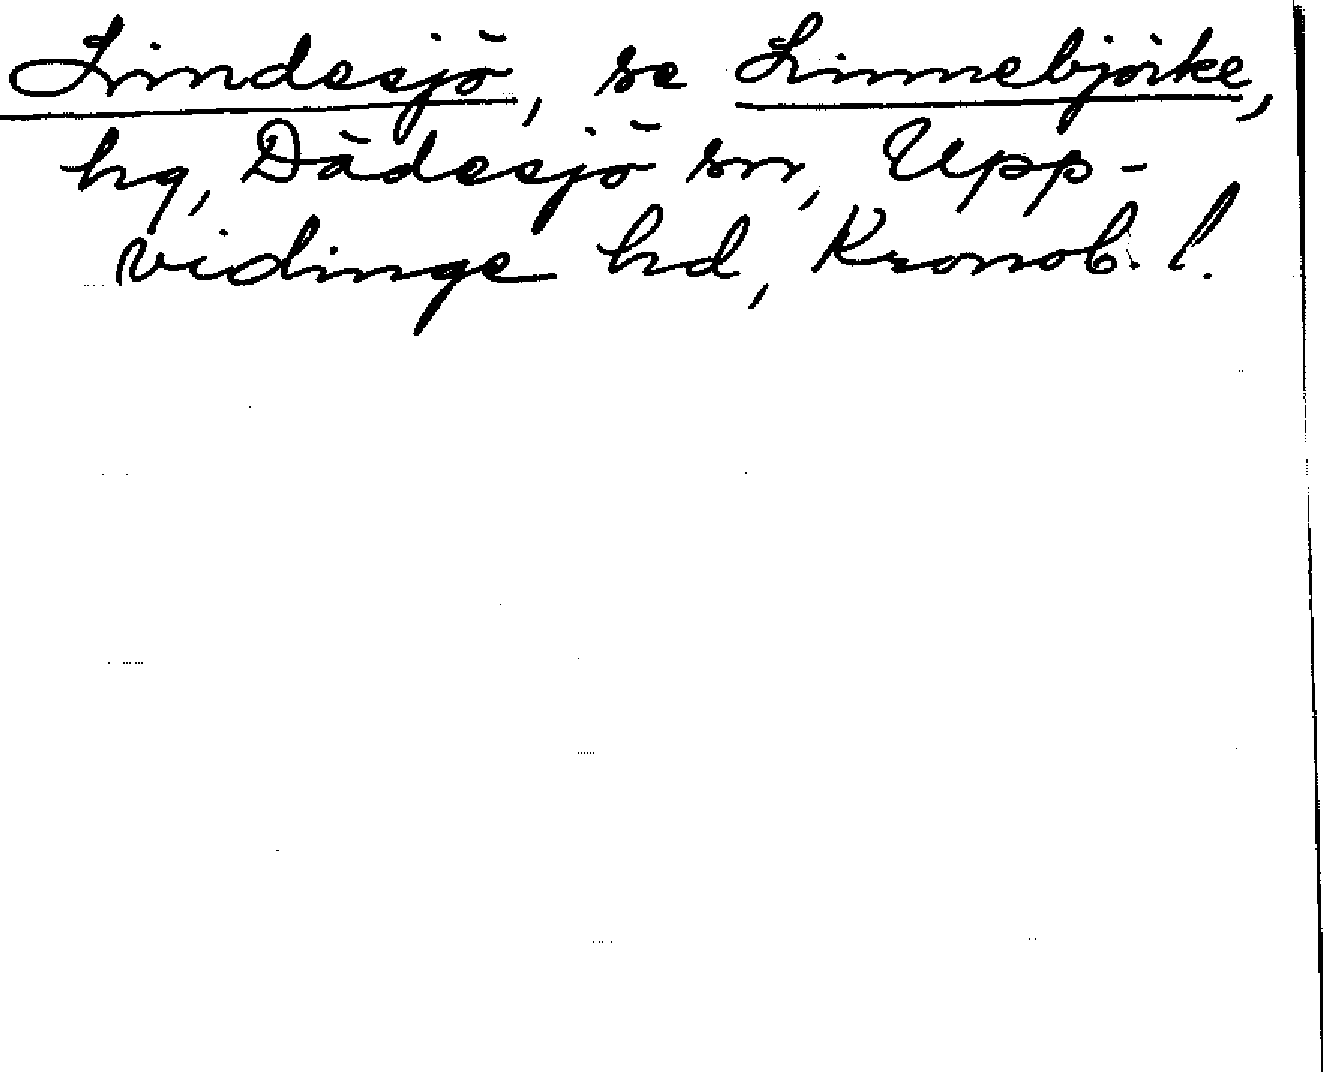 Lindesjö, se Linnebjörke,
hg, Dädesjö sn, Upp-
vidinge hd, Kronob. l.